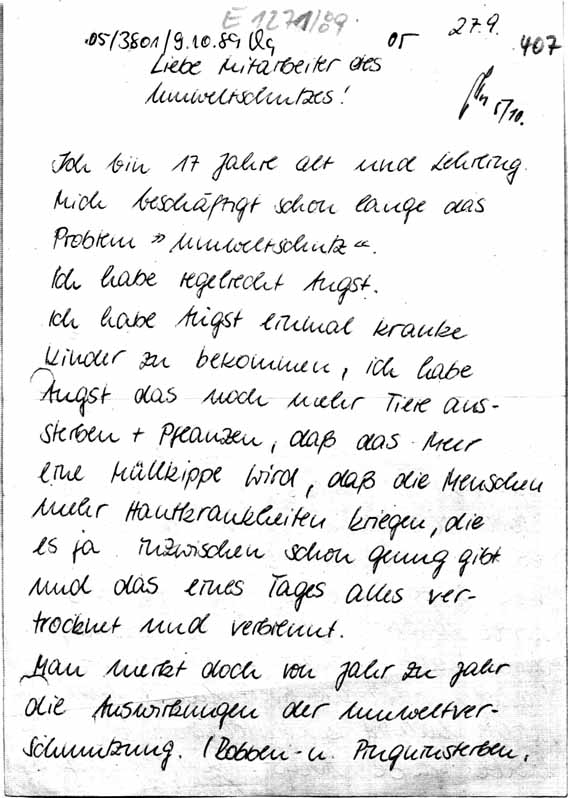 E 1271/89
05/3801/9.10.89
05
27.9.
407
Liebe Mitarbeiter des
Umweltschutzes!
5/10.
Ich bin 17 Jahre alt und Lehrling.
Mich beschäftigt schon lange das
Problem "Umweltschutz".
Ich habe regelrecht Angst.
Ich habe Angst einmal kranke
Kinder zu bekommen, ich habe
Angst das noch mehr Tiere aus-
sterben + Pflanzen, daß das Meer
eine Müllkippe wird, daß die Menschen
mehr Hautkrankheiten kriegen, die
es ja inzwischen schon genug gibt
und das eines Tages alles ver-
trocknet und verbrennt.
Man merkt doch von Jahr zu Jahr
die Auswirkungen der Umweltver-
schmutzung. (Robben- u. Pinguinsterben,